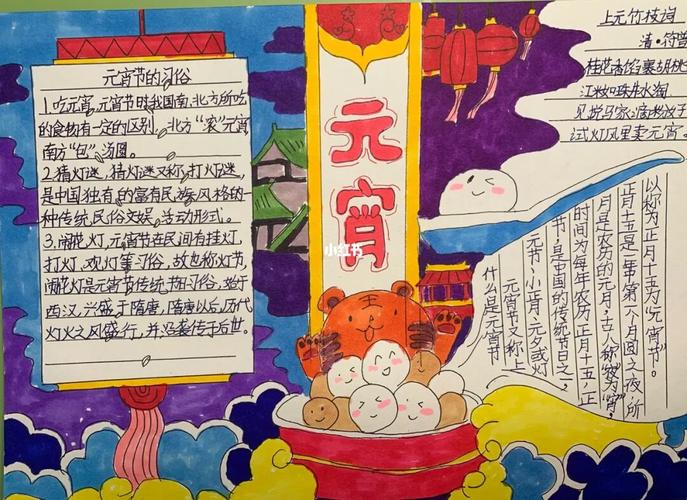 元宵节的习俗
1.吃元宵，元宵节时我国南、北方所吃
的食物有一定的区别，北方“滚”元宵
南方“包”汤圆。
2.猜灯谜，猜灯谜又称打灯谜，
是中国独有的富有民族风格的一
种传统民俗文娱活动形式。
3.闹花灯，元宵节在民间有挂灯，
打灯、观灯等习俗，故也称灯节
闹花灯是元宵节传统节日习俗，始于
西汉，兴盛于隋唐，隋唐以后，历代
灯火之风盛行，并沿袭传于后世。
元宵
小红书
上元竹枝词
清·符曾
桂花香馅裹胡桃
江米如珠井水淘
见说马家滴粉好
试灯风里卖元宵。
什么是元宵节
元宵节又称上
元节、小正月、元夕或灯
节，是中国的传统节日之一，
时间为每年农历正月十五，正
月是农历的元月，古人称“夜”为“宵”
正月十五是一年中第一个月圆之夜，所
以称为正月十五为“元宵节”。